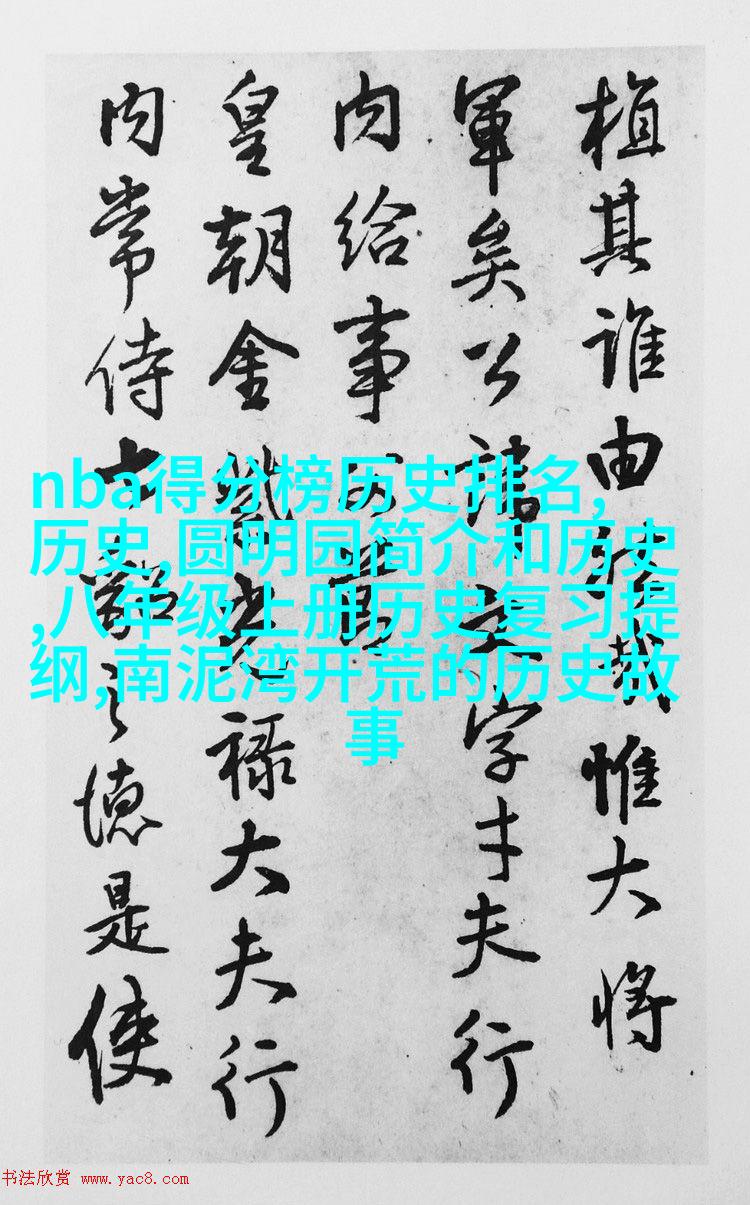 植其誰由哉惟大將
軍矣公諱字才夫行
内給事
皇朝金光祿大夫行
内常侍之德是使
nba得分榜历史排名,
历史,圆明园简介和历史
,八年级上册历史复习提
纲,南泥湾开荒的历史故
事
书法欣赏 www.yac8.com